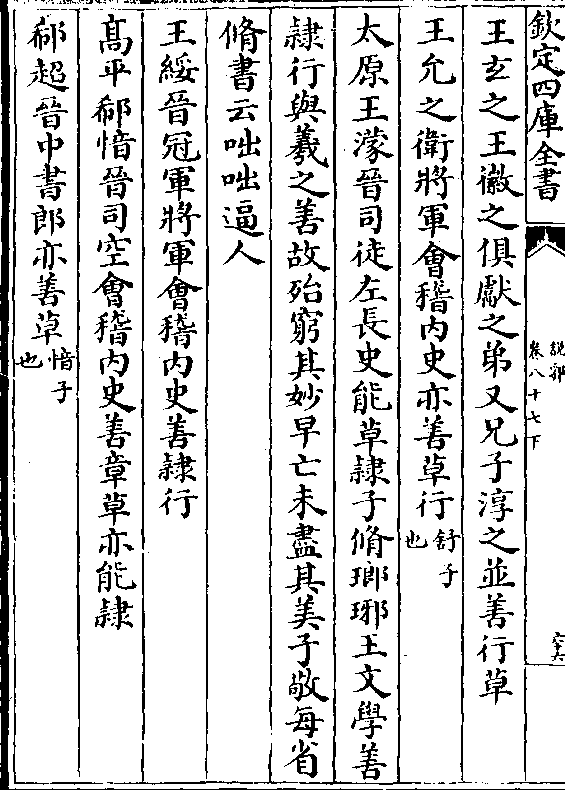 欽定四庫全書
說郛
卷八十七下
六十六
王玄之王徽之俱獻之弟又兄子淳之並善行草
王允之衛將軍會稽内史亦善草行舒子也
太原王濛晉司徒左長史能草隸子脩瑯琊王文學善
隸行與羲之善故殆窮其妙早亡未盡其美子敬每省
脩書云咄咄逼人
王綏晉冠軍將軍會稽内史善隸行
髙平郗愔晉司空會稽内史善章草亦能隸
郗超晉中書郎亦善草愔子也